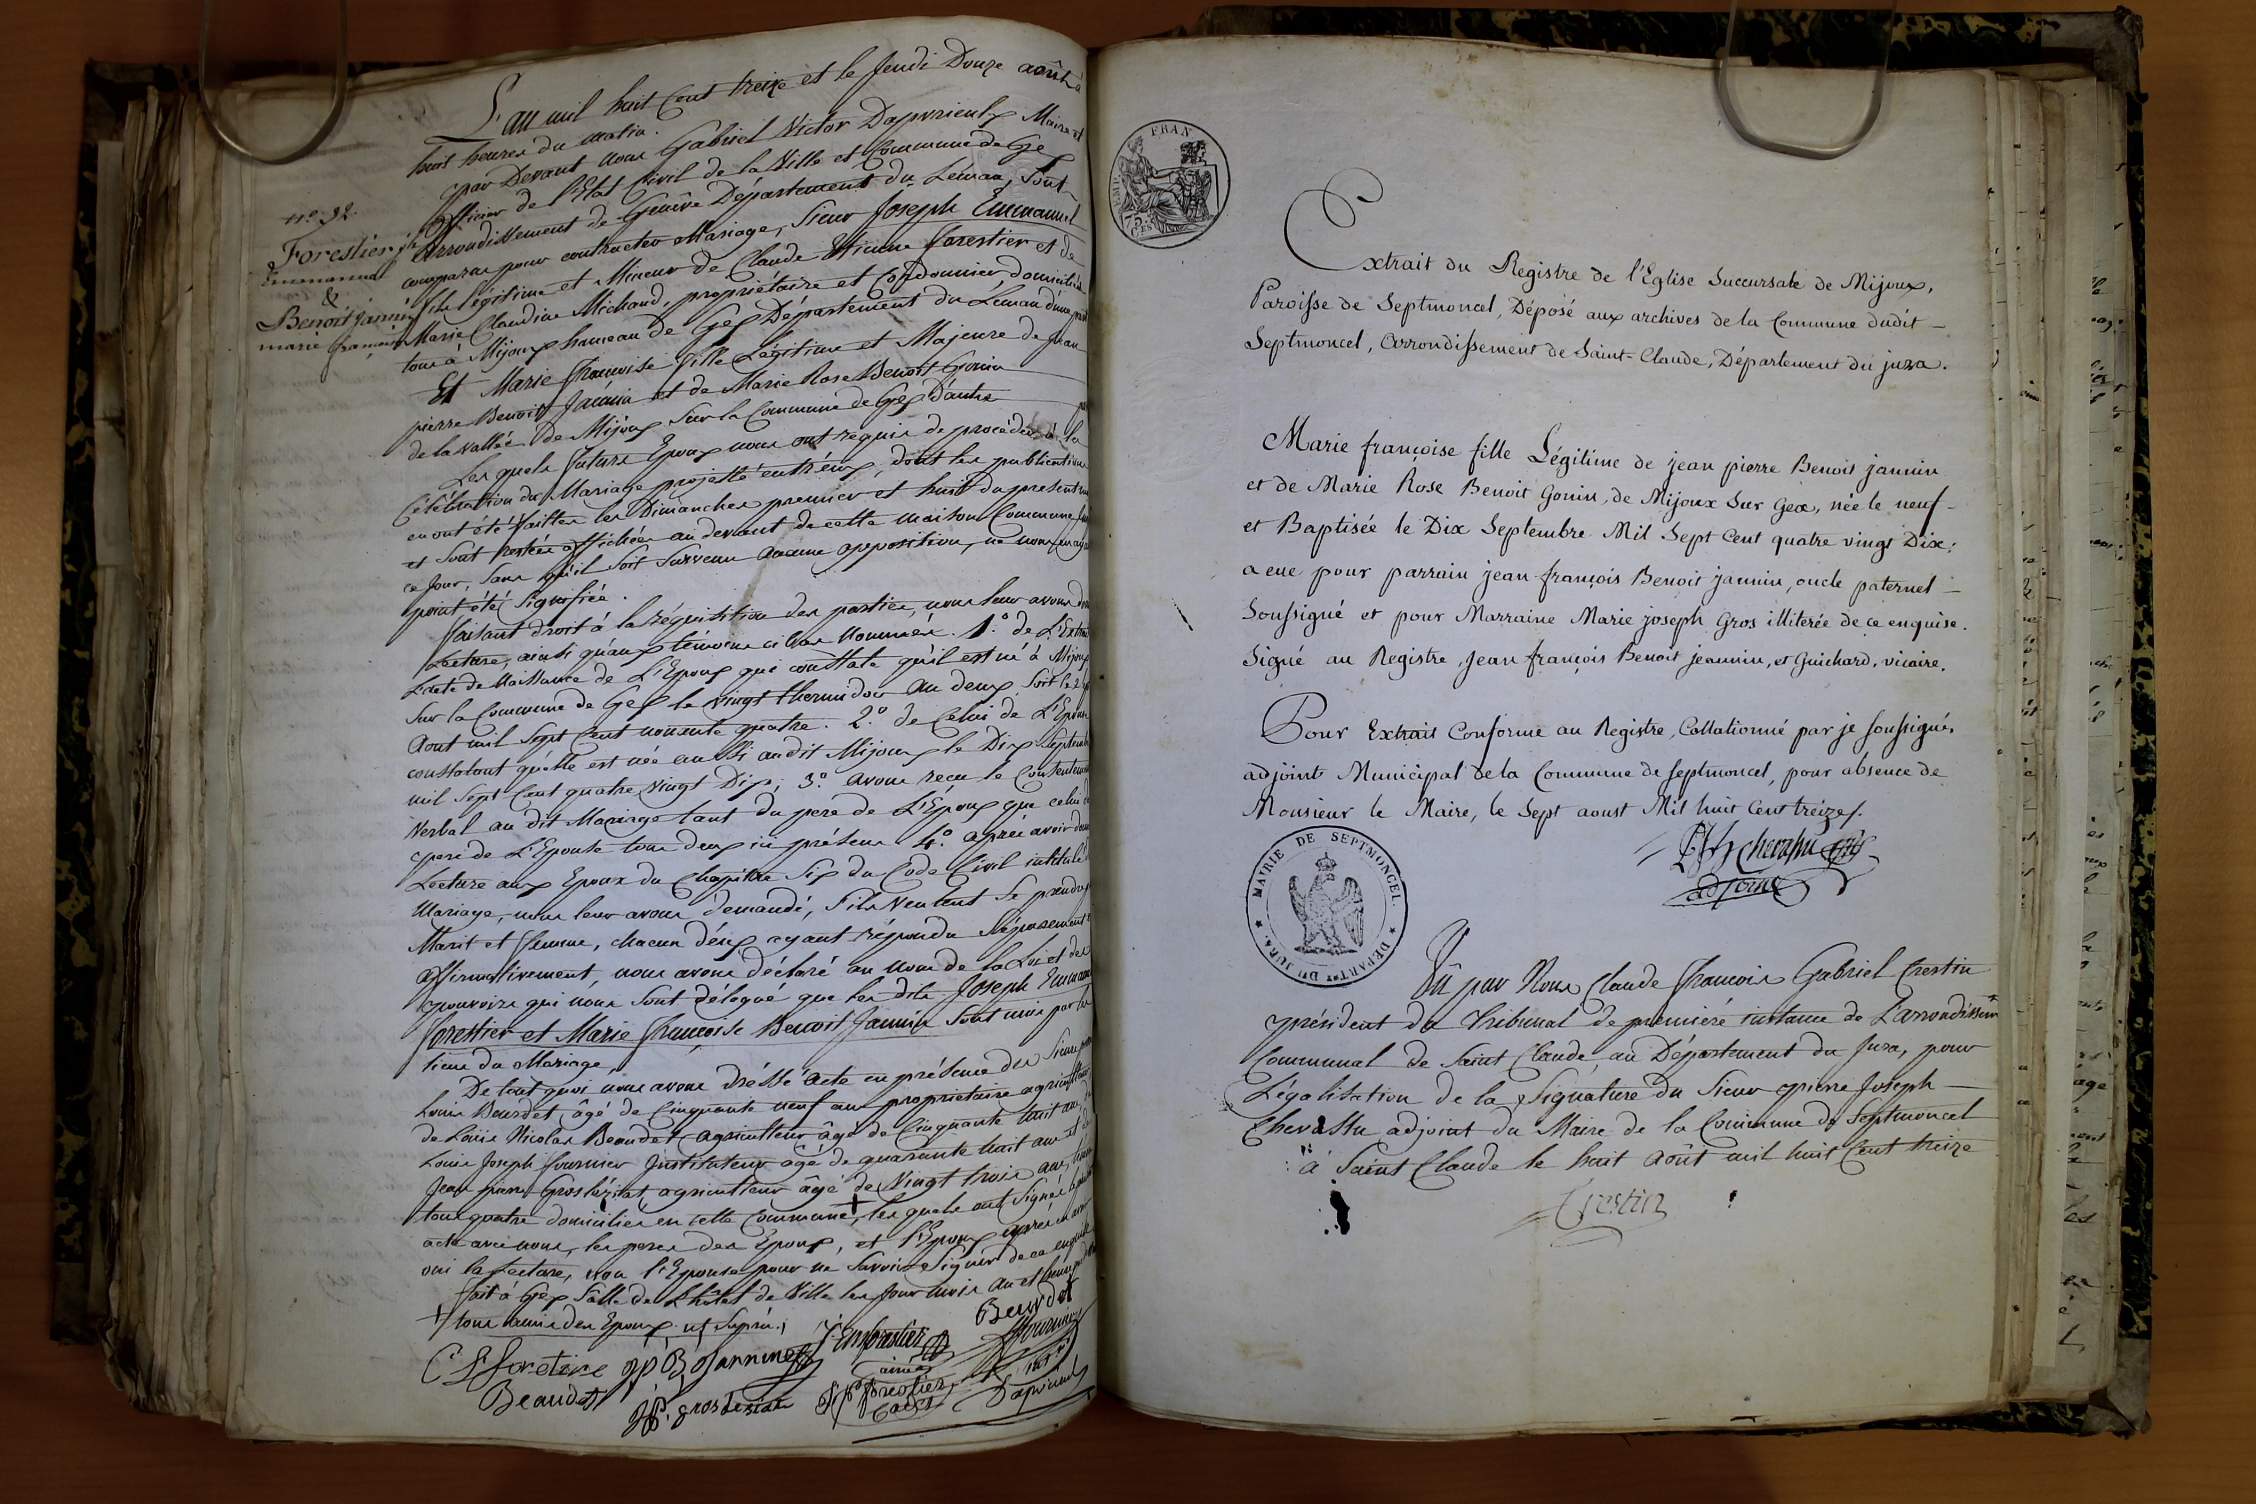 L'an mil huit Cent treize et le Jeudi Douze août à
huit heures du matin.
par Devant nous Gabriel Victor Dapvrieulx Maire et
Officier de l'Etat Civil de la Ville et Commune de Gex
arrondissement de Genêve Département du Léman, Sont
comparus pour contracter Mariage, Sieur Joseph Emmanuel
fils légitime et Mineur de Claude Etienne forestier et de
Marie Claudine Michaud, propriétaire et Cordonnier domiciliés
tous à Mijoux hameau de Gex Département du Léman d'une part
Et Marie françoise fille Légitime et Majeure de Jean
pierre Benoit Jannin et de Marie Rose Benoit Gonin
de la vallée de Mijoux Sur la Commune de Gex D'autre part
n.º 32.
Forestier jh
Emmanuel
&
Benoit Jannin
marie françoise
Les quels futurs Epoux nous ont requis de procéder à la
Célébration du Mariage projetté entr'eux, dont les publications
en ont été faittes les Dimanches premier et huit du present mois
et Sont restées affichées au devant de cette maison Commune
ce Jour, Sans qu'il Soit Survenu aucune opposition, ne nous en ayant
point été Signifiée.
faisant droit à la réquisition des parties, nous leur avons donné
Lecture, ainsi qu'aux témoins ci bas nommés. 1.º de L'Extrait
L'acte de Naissance de L'Epoux qui constate qu'il est né à Mijoux
Sur la Commune de Gex le vingt thermidor an deux Soit le
Aout mil Sept Cent nonante quatre. 2.º de Celui de L'Epouse
constatant qu'elle est née aussi audit Mijoux le Dix Septembre
mil Sept Cent quatre Vingt Dix; 3.º avons reçu le Consentement
Verbal au dit Mariage tant du pere de L'Epoux que celui du
pere de L'Epouse tous deux ici présens 4.º après avoir donné
Lecture aux Epoux du Chapitre Six du Code Civil intitulé du
Mariage, nous leur avons demandé, S'ils veulent Se prendre pour
Marit et femme, chacun d'eux ayant répondu Séparement et
affirmativement, nous avons déclaré au nom de la Loi et des
pouvoirs qui nous Sont délegué que les dits Joseph Emmanuel
forestier et Marie françoise Benoit Jannin Sont unis par les
liens du Mariage,
De tout quoi nous avons dréssé acte en présence des Sieurs
Louis Beurdet, âgé de Cinquante neuf ans proprietaire agriculteur
de Loüis Nicolas Beaudet agriculteur âgé de Cinquante huit ans, de
Louis Joseph fournier Instituteur âgé de quarante huit ans et de
Jean pierre Grosléziat, agriculteur âgé de Vingt trois ans,
tous quatre domiciliés en cette Commune +, les quels ont Signé le présent
acte avec nous, les peres des Epoux, et l'Epoux après en avoir
oui la Lecture, non l'Epouse pour ne Savoir Signer de ce enquise
fait à Gex Salle de L'hôtel de Ville les Jour mois an et heure que dessus
+ tous amis des Epoux. ut Suprà.;
Beurdet
C E foretier jp B Jannin J. Em forestier fournier
ainé inst.r
Beaudet JP. Groslesiat
Cadet Dapvrieulx
EMP. FRAN.
75 CES
Extrait du Registre de l'Eglise Succursale de Mijoux,
Paroisse de Septmoncel, Déposé aux archives de la Commune dudit
Septmoncel, Arrondissement de Saint-Claude, Département du jura.
Marie françoise fille Légitime de jean pierre Benoit jannin
et de Marie Rose Benoit Gonin, de Mijoux Sur Gex, née le neuf
et Baptisée le Dix Septembre Mil Sept Cent quatre vingt Dix;
a eue pour parrain jean françois Benoit jannin, oncle paternel
Soussigné et pour Marraine Marie joseph Gros illiterée de ce enquise.
Signé au Registre, Jean françois Benoit jeannin, et Guichard, vicaire.
Pour Extrait Conforme au Registre, Collationné par je soussigné,
adjoint Municipal de la Commune de septmoncel, pour absence de
Monsieur le Maire, le Sept aoust Mil huit Cent treize.
PJh chevassu
adjoint
MAIRIE DE SEPTMONCEL. ★ DEPART.nt DU JURA. ★
Vû par Nous Claude François Gabriel Crestin
président du Tribunal de premiére instance de L'arrondissemt
Communal de Saint Claude, au Département du Jura, pour
Légalisation de la Signature du Sieur pierre Joseph
Chevassu adjoint du Maire de la Commune de Septmoncel
à Saint Claude le huit août mil huit Cent treize
Crestin